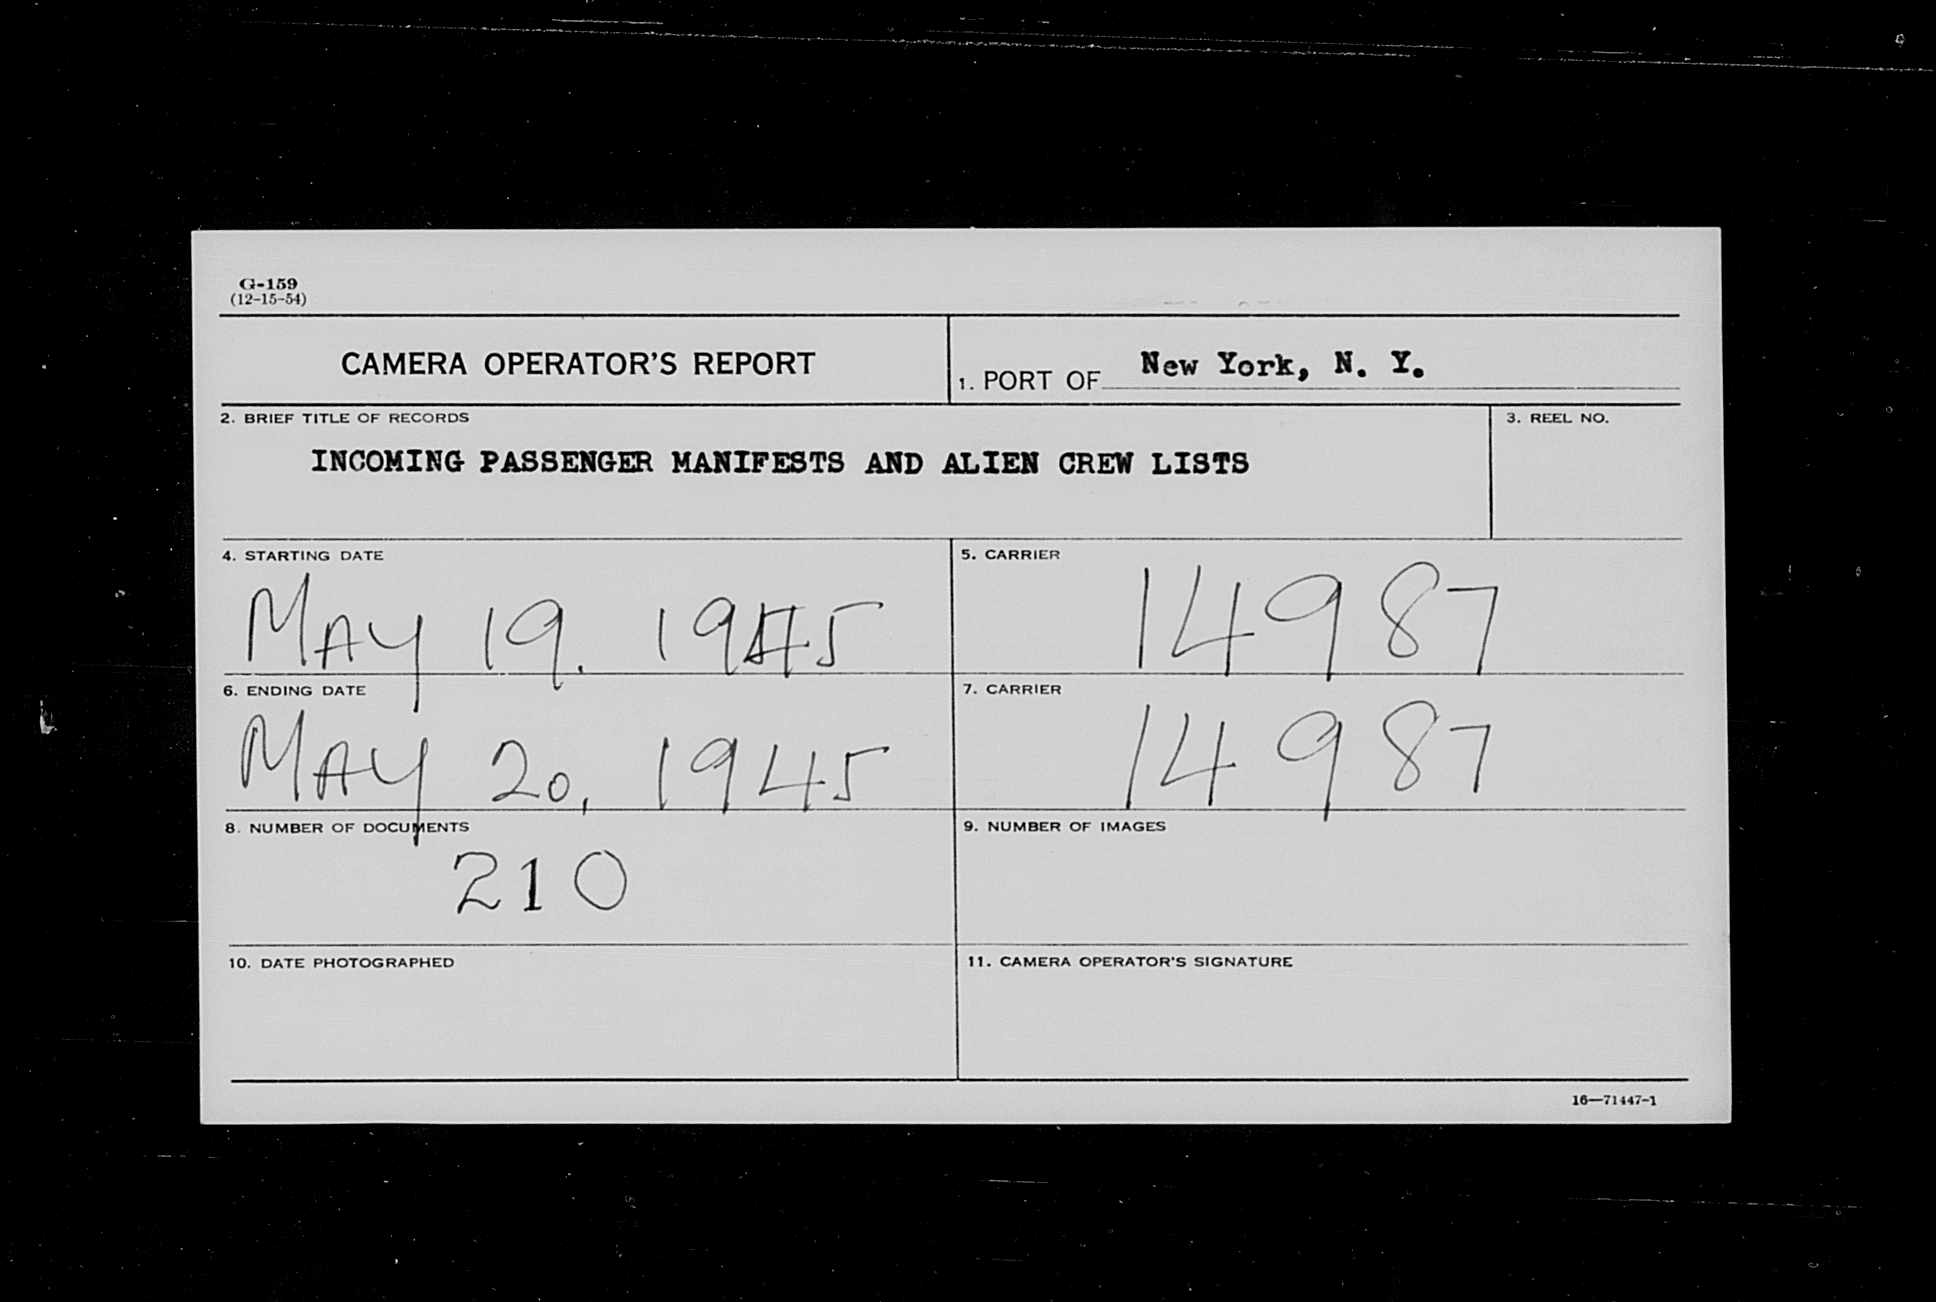 G-159
(12-15-54)
CAMERA OPERATOR'S REPORT
1. PORT OF New York, N. Y.
2. BRIEF TITLE OF RECORDS
INCOMING PASSENGER MANIFESTS AND ALIEN CREW LISTS
3. REEL NO.
4. STARTING DATE
MAY 19. 1945
5. CARRIER
14987
6. ENDING DATE
MAY 20, 1945
7. CARRIER
14987
8. NUMBER OF DOCUMENTS
210
9. NUMBER OF IMAGES
10. DATE PHOTOGRAPHED
11. CAMERA OPERATOR'S SIGNATURE
16—71447-1